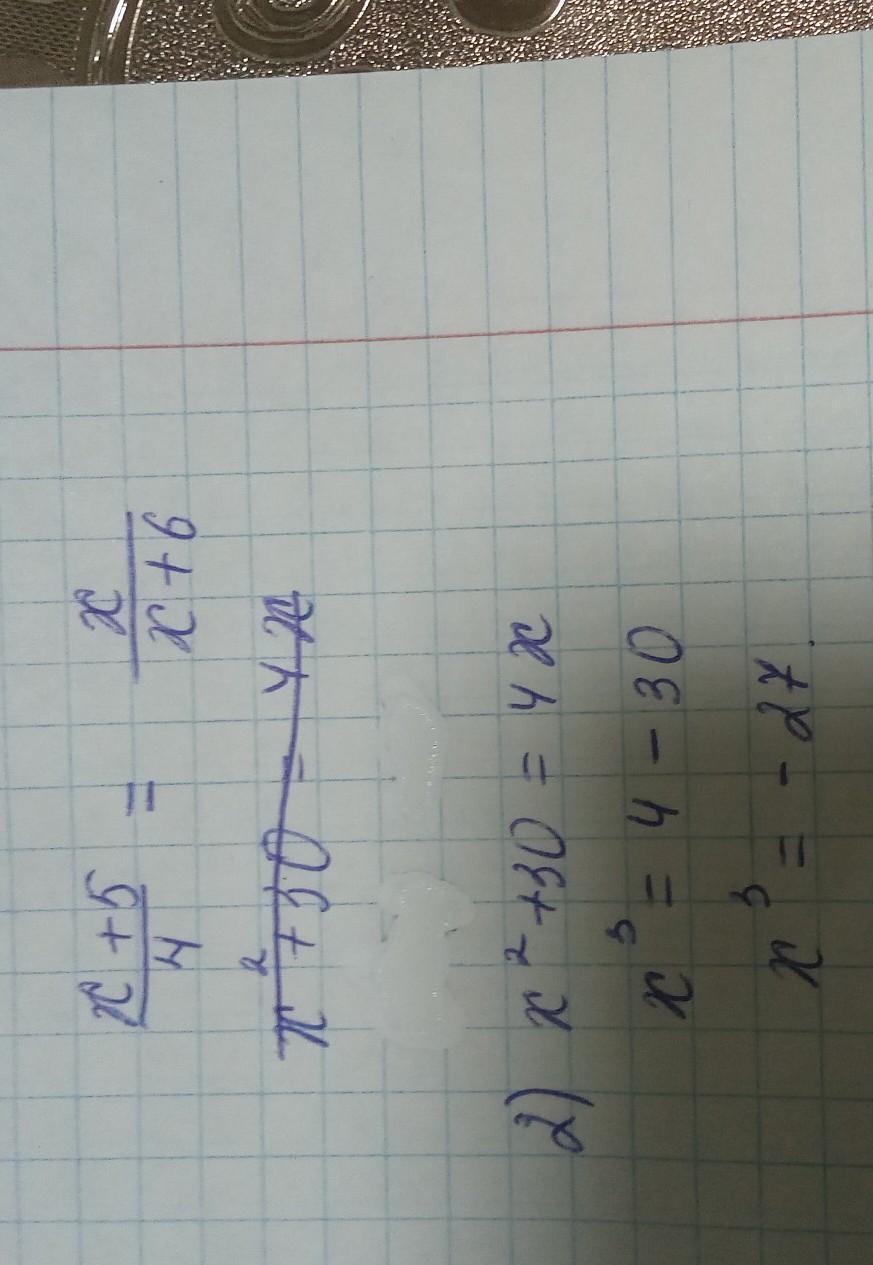 x+5/4 = x/x+6
x²+30=4x
2) x²+30=4x
x³=4-30
x³=-27.